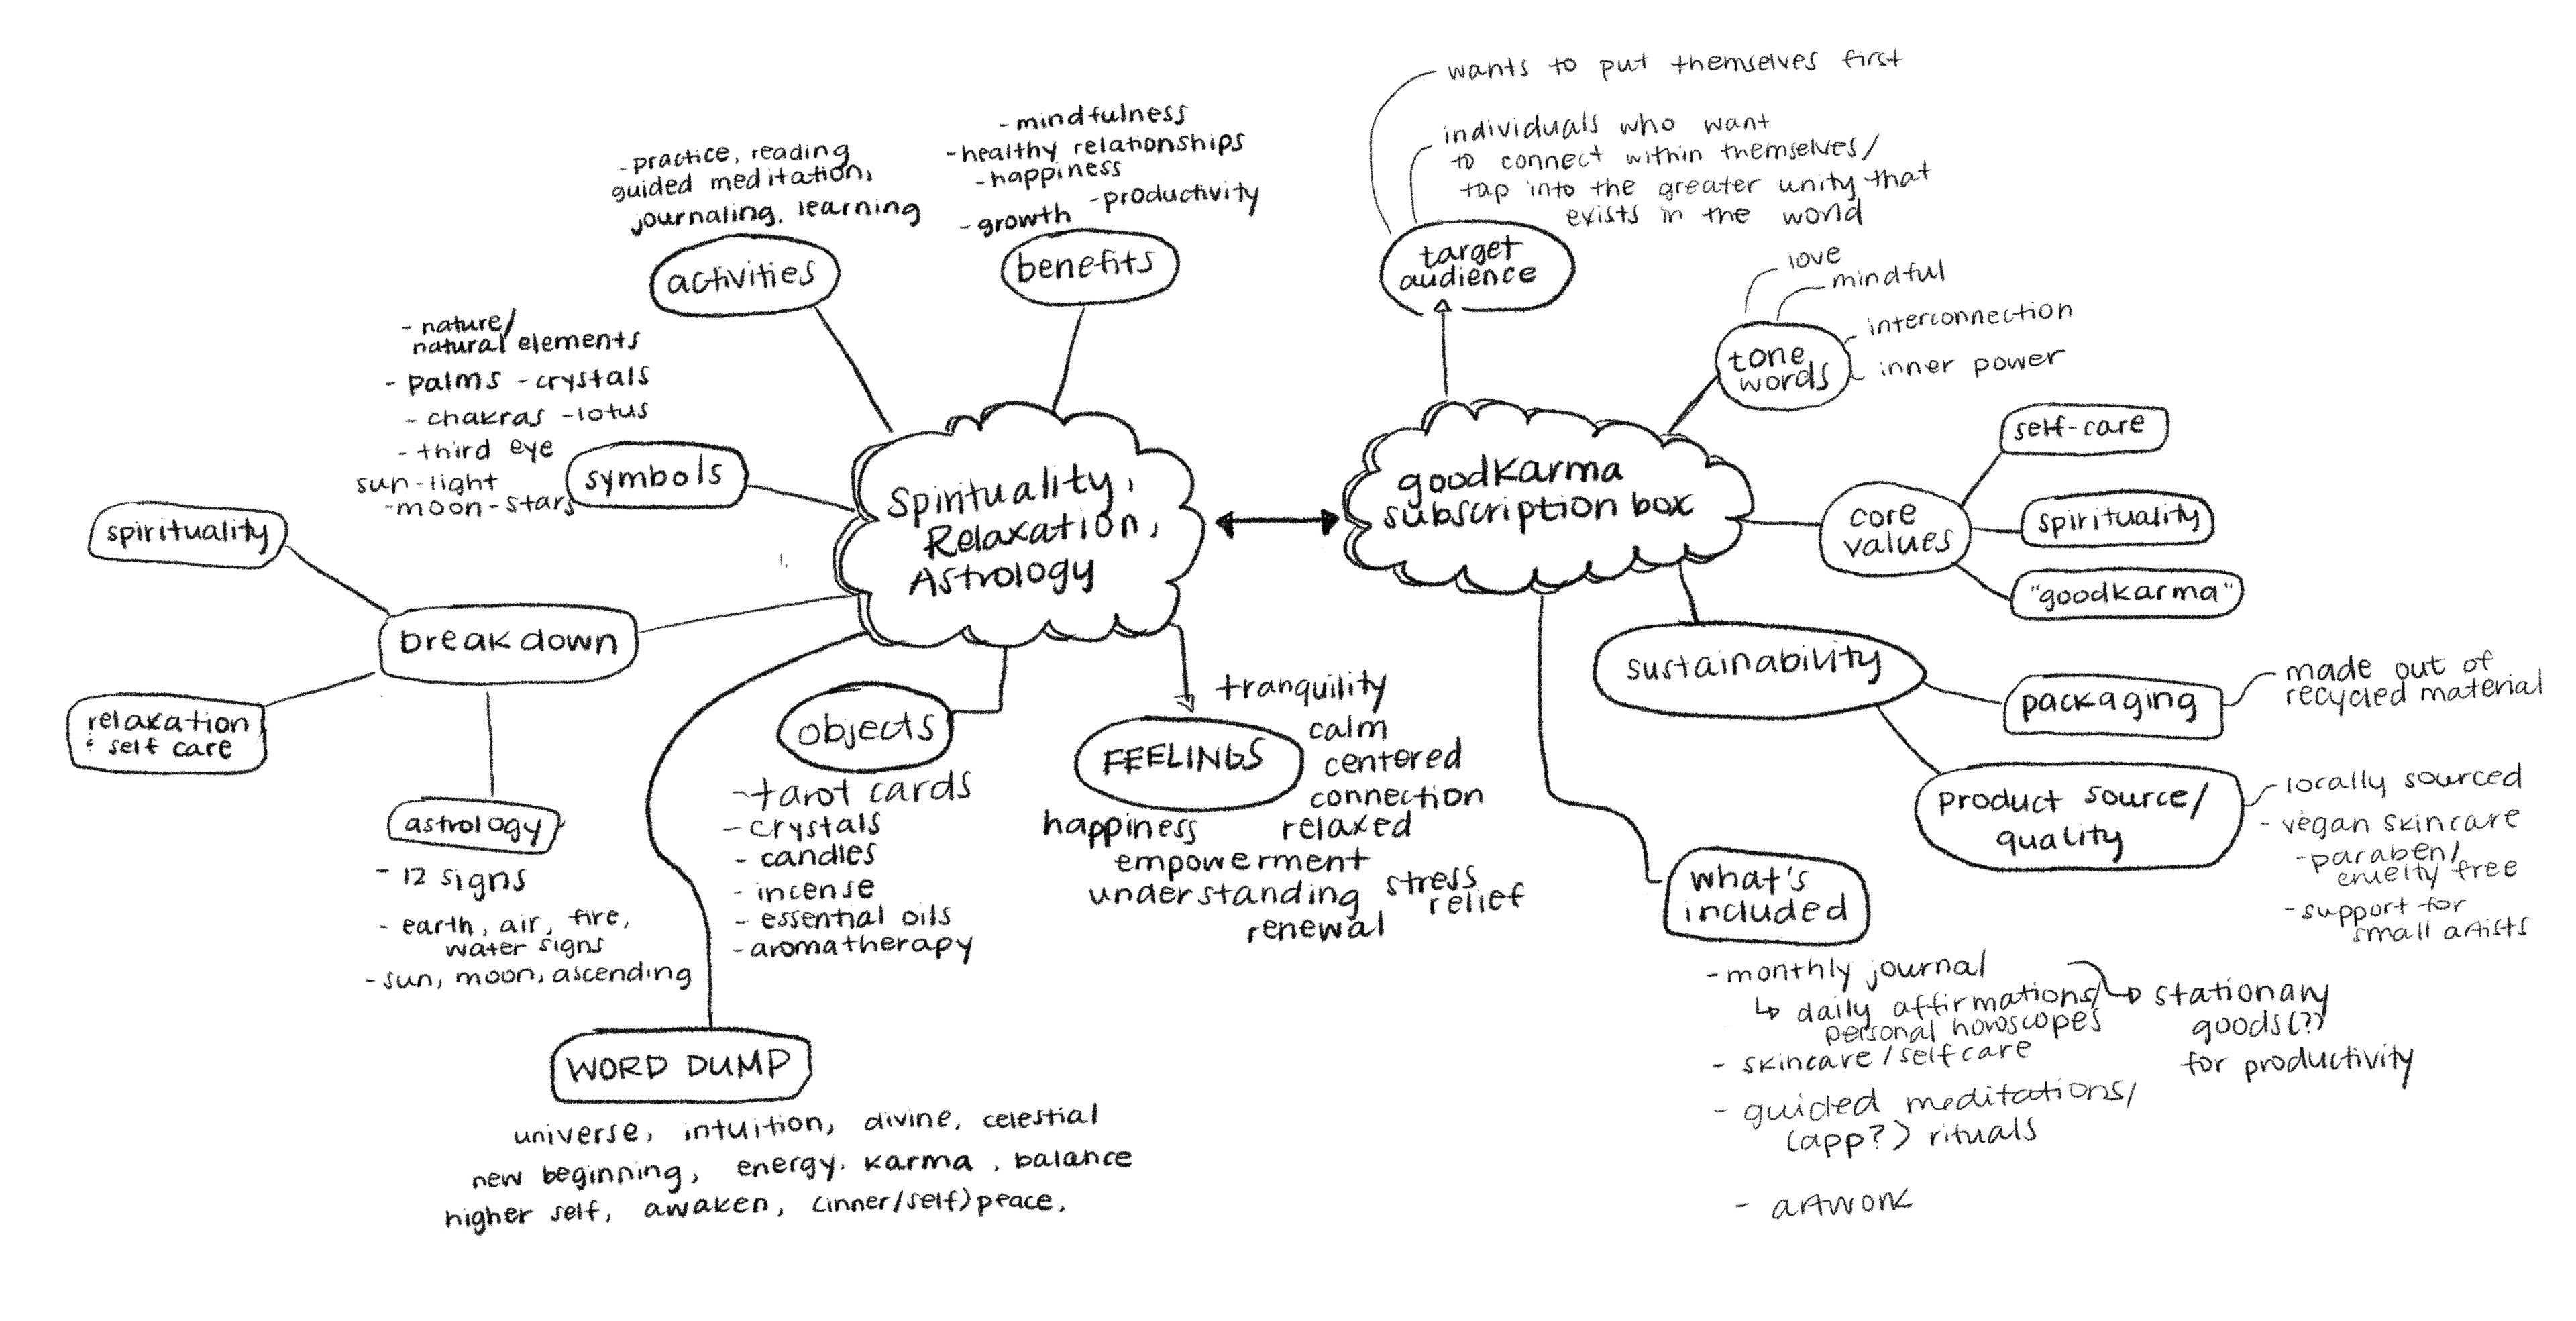 - practice, reading
guided meditation,
journaling, learning
activities
- mindfulness
- healthy relationships
- happiness
- productivity
- growth
benefits
- nature/
natural elements
- palms - crystals
- chakras - lotus
- third eye
sun - light
- moon - stars
symbols
Spirituality,
Relaxation,
Astrology
spirituality
breakdown
relaxation
& self care
astrology
- 12 signs
- earth, air, fire,
water signs
- sun, moon, ascending
objects
- tarot cards
- crystals
- candles
- incense
- essential oils
- aromatherapy
FEELINGS
tranquility
calm
centered
connection
happiness
relaxed
empowerment
understanding
stress
relief
renewal
WORD DUMP
universe, intuition, divine, celestial
new beginning, energy, karma, balance
higher self, awaken, (inner/self) peace,
wants to put themselves first
individuals who want
to connect within themselves/
tap into the greater unity that
exists in the world
target
audience
love
mindful
interconnection
inner power
tone
words
goodkarma
subscription box
core
values
self-care
spirituality
"goodkarma"
sustainability
packaging
made out of
recycled material
product source/
quality
- locally sourced
- vegan skincare
- paraben/
cruelty free
- support for
small artists
what's
included
- monthly journal
↳ daily affirmations/
personal horoscopes
stationary
goods(??)
for productivity
- skincare/selfcare
- guided meditations/
(app?) rituals
- artwork